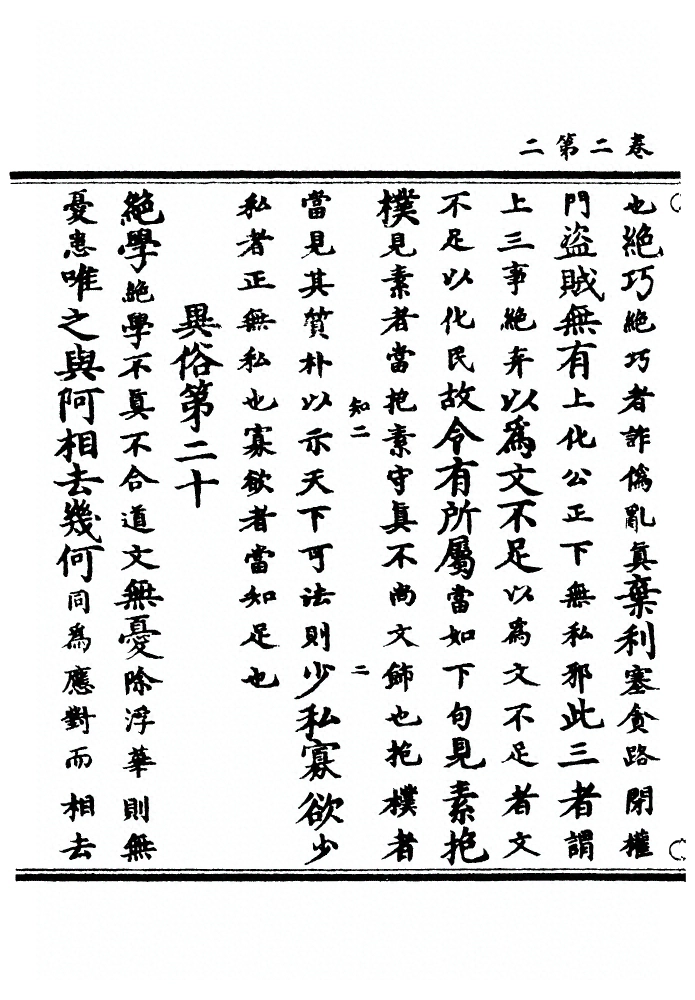 卷二第二
也絕巧絕巧者詐僞亂真棄利塞貪路閉權
門盜賊無有上化公正下無私邪此三者謂
上三事絕弃以爲文不足以爲文不足者文
不足以化民故令有所屬當如下句見素抱
樸見素者當抱素守真不尚文飾也抱樸者
知二
二
當見其質朴以示天下可法則少私寡欲少
私者正無私也寡欲者當知足也
異俗第二十
絕學絕學不真不合道文無憂除浮華則無
憂患唯之與阿相去幾何同爲應對而相去